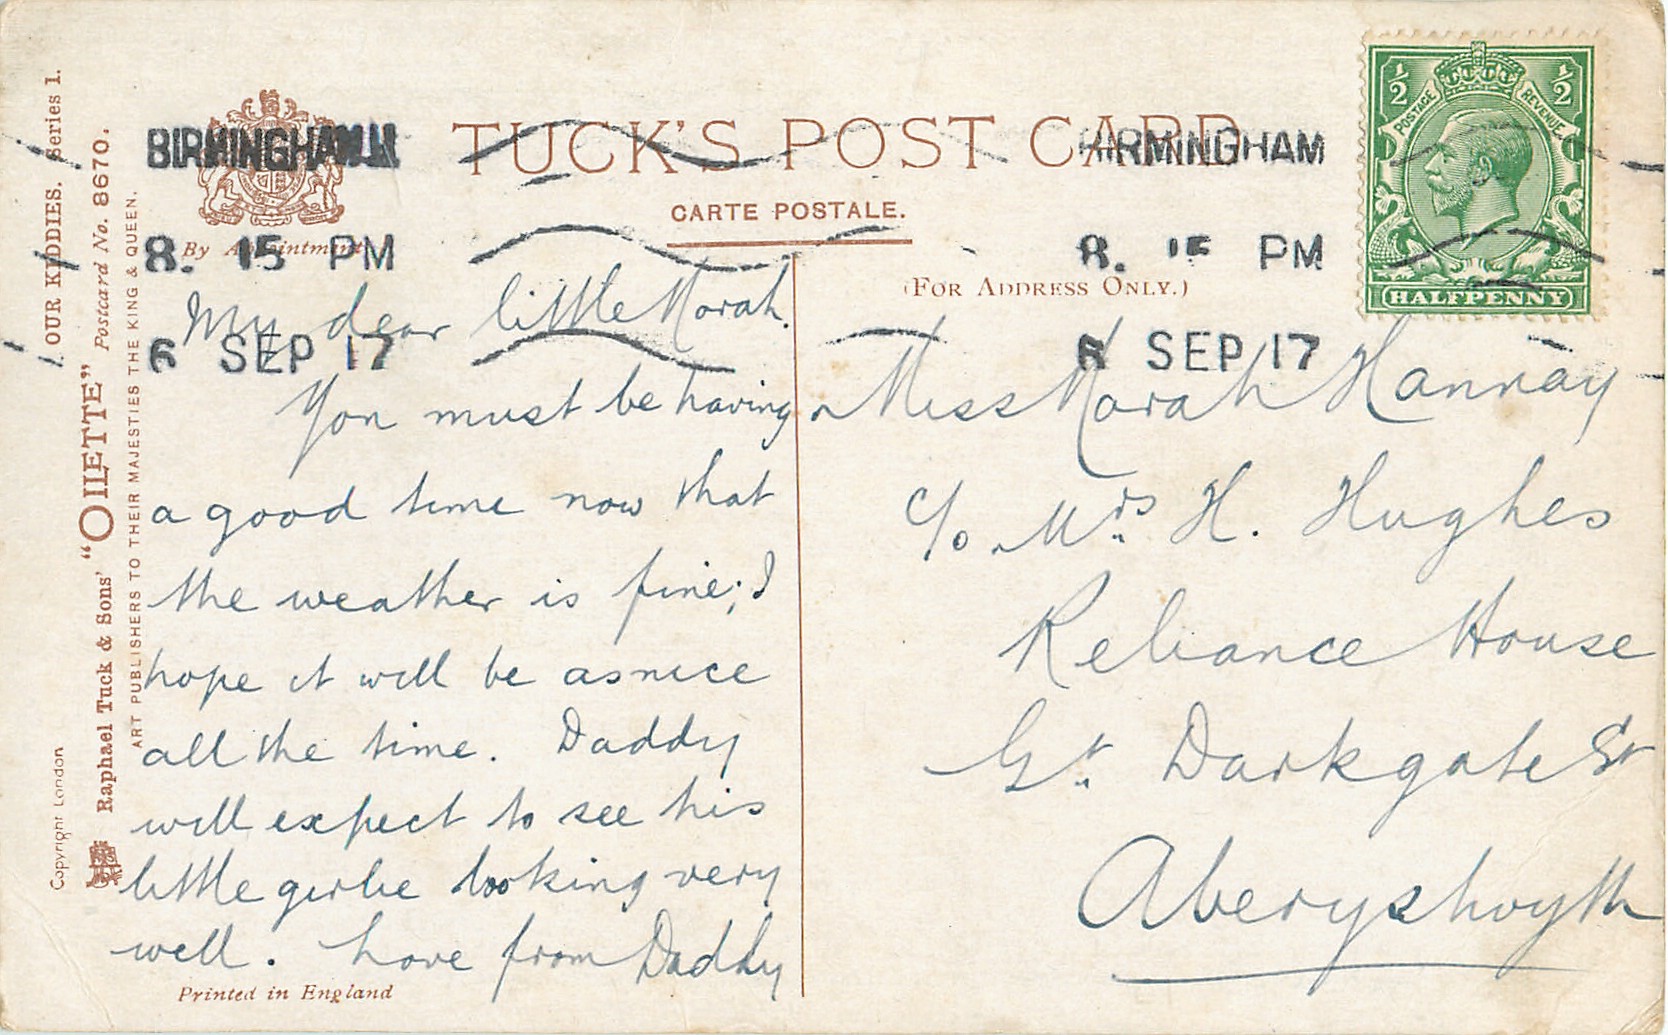 OUR KIDDIES. Series 1.
"OILETTE" Postcard No. 8670.
Raphael Tuck & Sons'
ART PUBLISHERS TO THEIR MAJESTIES THE KING & QUEEN.
Copyright London
BIRMINGHAM
8. 15 PM
6 SEP 17
By Appointment
TUCK'S POST CARD
CARTE POSTALE.
(FOR ADDRESS ONLY.)
BIRMINGHAM
8. 15 PM
6 SEP 17
1/2 1/2
POSTAGE REVENUE
HALFPENNY
My dear little Norah.
You must be having
a good time now that
the weather is fine; I
hope it will be as nice
all the time. Daddy
will expect to see his
little girlie looking very
well. Love from Daddy
Printed in England
Miss Norah Hannay
c/o Mrs H. Hughes
Reliance House
Gt Darkgate St
Aberystwyth